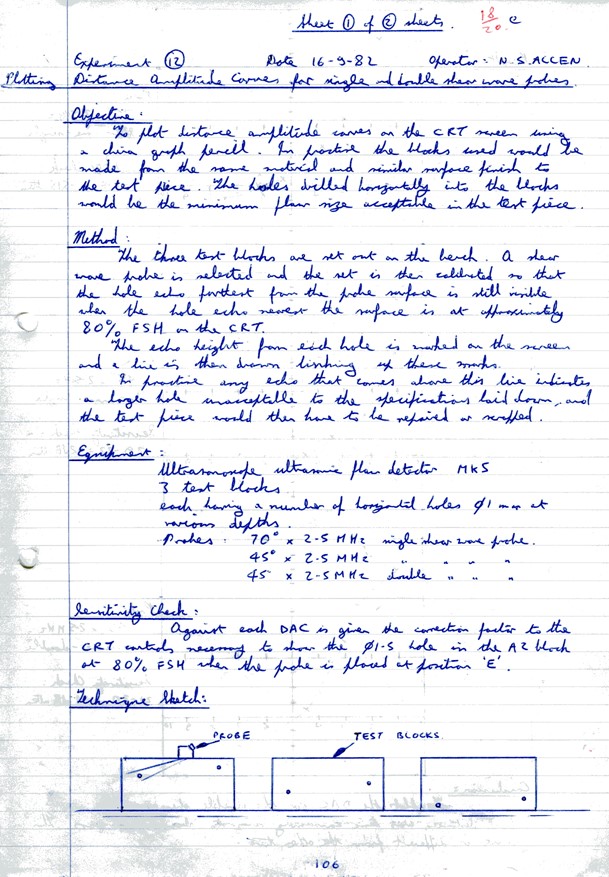 Sheet ① of ② sheets. 18/20 C
Experiment ⑫ Date 16-9-82 Operator: N.S. ALLEN.
Plotting Distance Amplitude Curves for single and double shear wave probes.
Objective:
To plot distance amplitude curves on the CRT screen using
a china graph pencil. In practise the blocks used would be
made from the same material and similar surface finish to
the test piece. The holes drilled horizontally into the blocks
would be the minimum flaw size acceptable in the test piece.
Method:
The three test blocks are set out on the bench. A shear
wave probe is selected and the set is then calibrated so that
the hole echo furthest from the probe surface is still visible
when the hole echo nearest the surface is at approximately
80% FSH on the CRT.
The echo height from each hole is marked on the screen
and a line is then drawn linking up these marks.
In practise any echo that comes above this line indicates
a larger hole unacceptable to the specifications laid down, and
the test piece would then have to be repaired or scrapped.
Equipment:
Ultrasonoscope ultrasonic flaw detector MK5
3 test blocks
each having a number of horizontal holes Ø1 mm at
various depths.
Probes: 70° x 2-5 MHz single shear wave probe.
45° x 2-5 MHz " " " "
45° x 2-5 MHz double " " "
Sensitivity Check:
Against each DAC is given the correction factor to the
CRT controls necessary to show the Ø1-5 hole in the A2 block
at 80% FSH when the probe is placed at position 'E'.
Technique Sketch:
PROBE TEST BLOCKS.
106